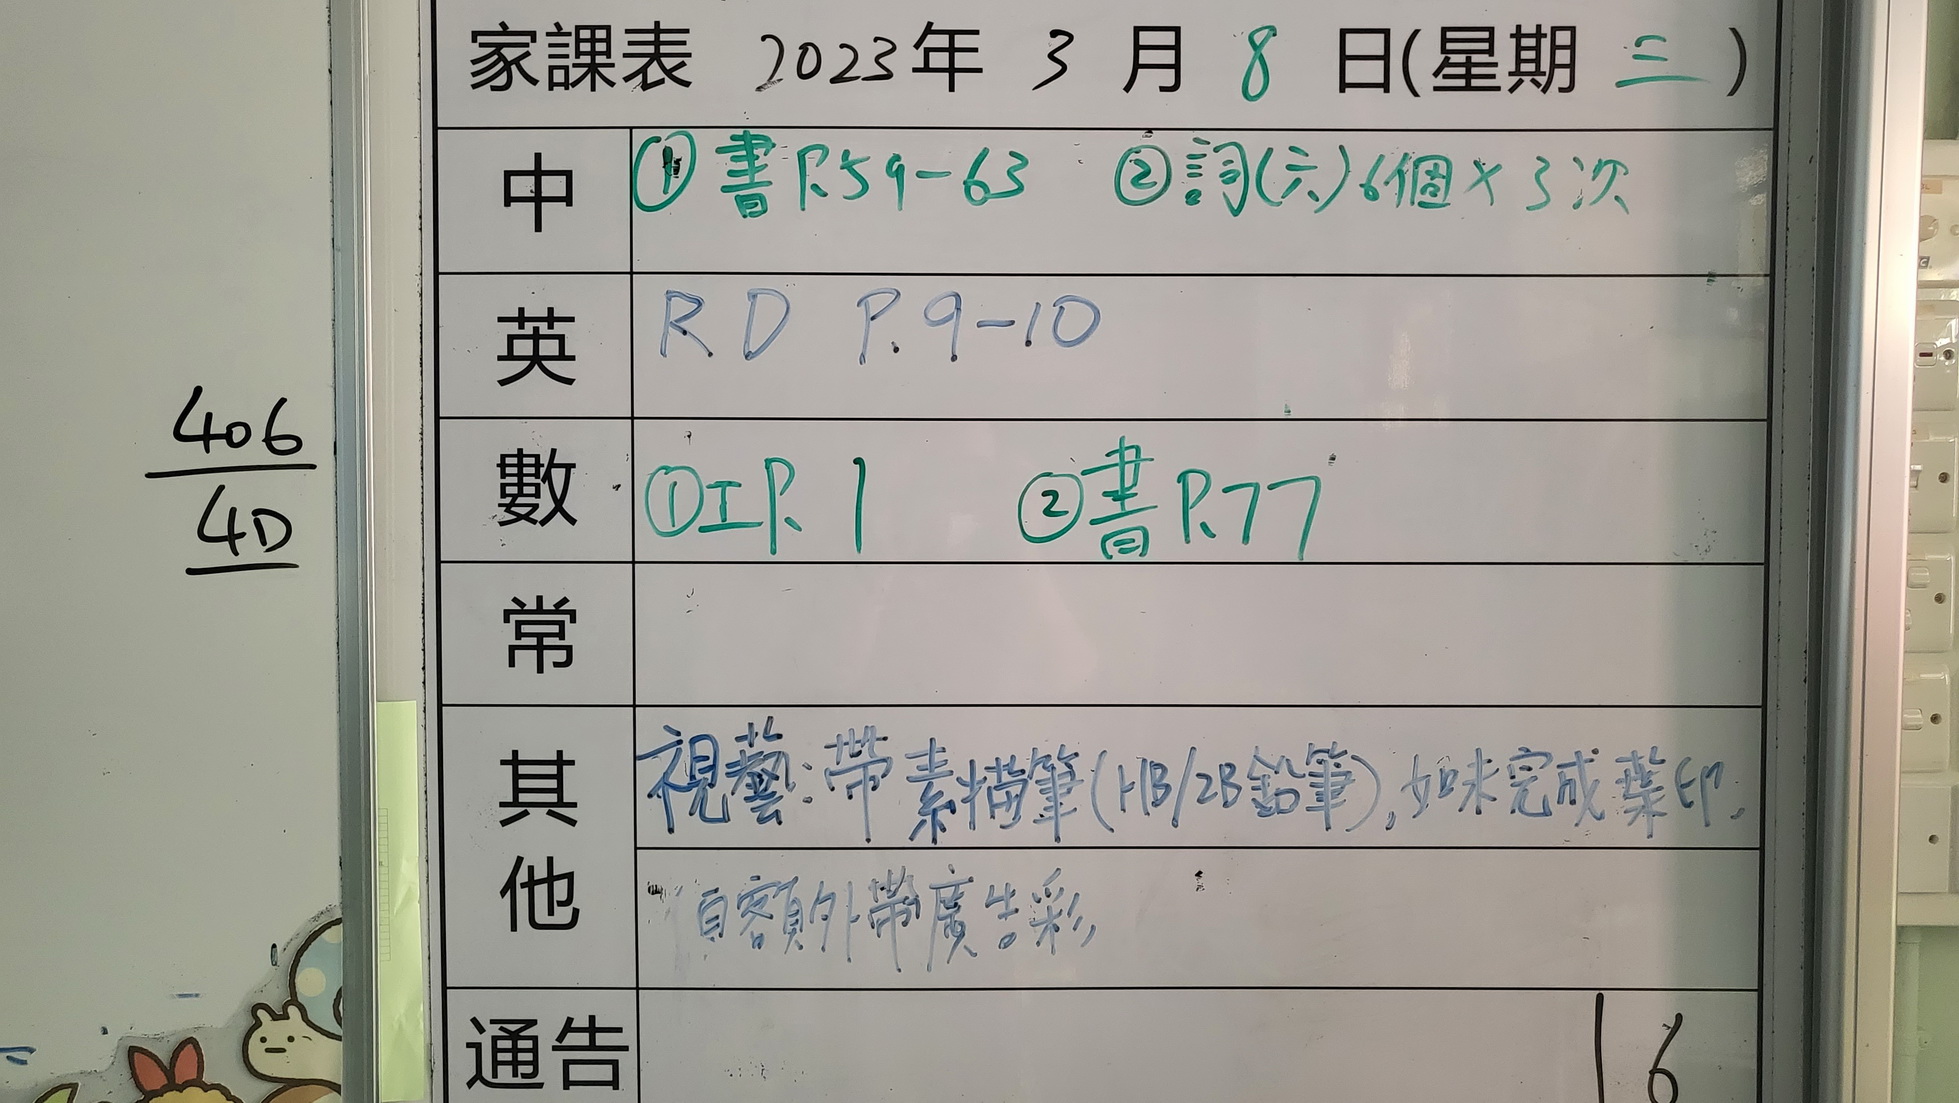 家課表 2023年 3 月 8 日(星期 三)
中 ①書P.59-63 ②詞(六)6個×3次
英 RD P.9-10
數 ①工P.1 ②書P.77
常
其他 視藝:帶素描筆(HB/2B鉛筆),如未完成葉印,
額外帶廣告彩
通告 16
406
4D